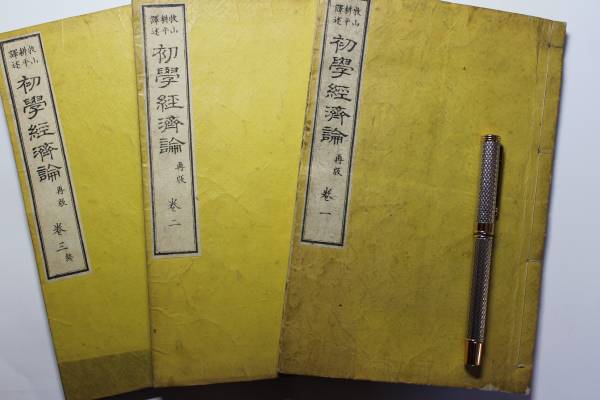 牧山
耕平
譯述
初學經濟論
再版
卷一
牧山
耕平
譯述
初學經濟論
再版
卷二
牧山
耕平
譯述
初學經濟論
再版
卷三終